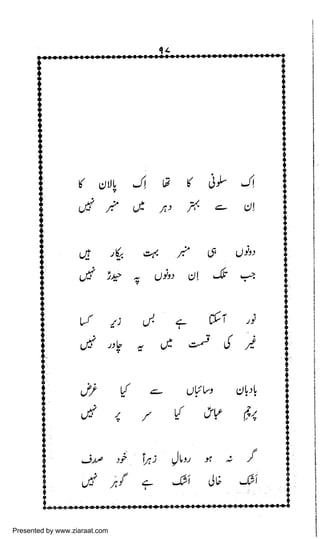 ۹۷
اِک سلونی کا تھا اِک پالان کا
اِن سے بہتر دہر میں منبر نہیں
دونوں ہی منبر بہت بیکار ہیں
جب تلک اِن دونوں پہ حیدرؑ نہیں
نور آسکتا ہے بس زیرِ کسا
غیر کی قسمت میں یہ چادر نہیں
بادبان وسائباں سے کیا غرض
پرچمِ عباسؑ کیا سر پر نہیں
گر نہ ہو رومالِ زہراؑ خود صدف
اَشک خالی اَشک ہے گوہر نہیں
Presented by www.ziaraat.com